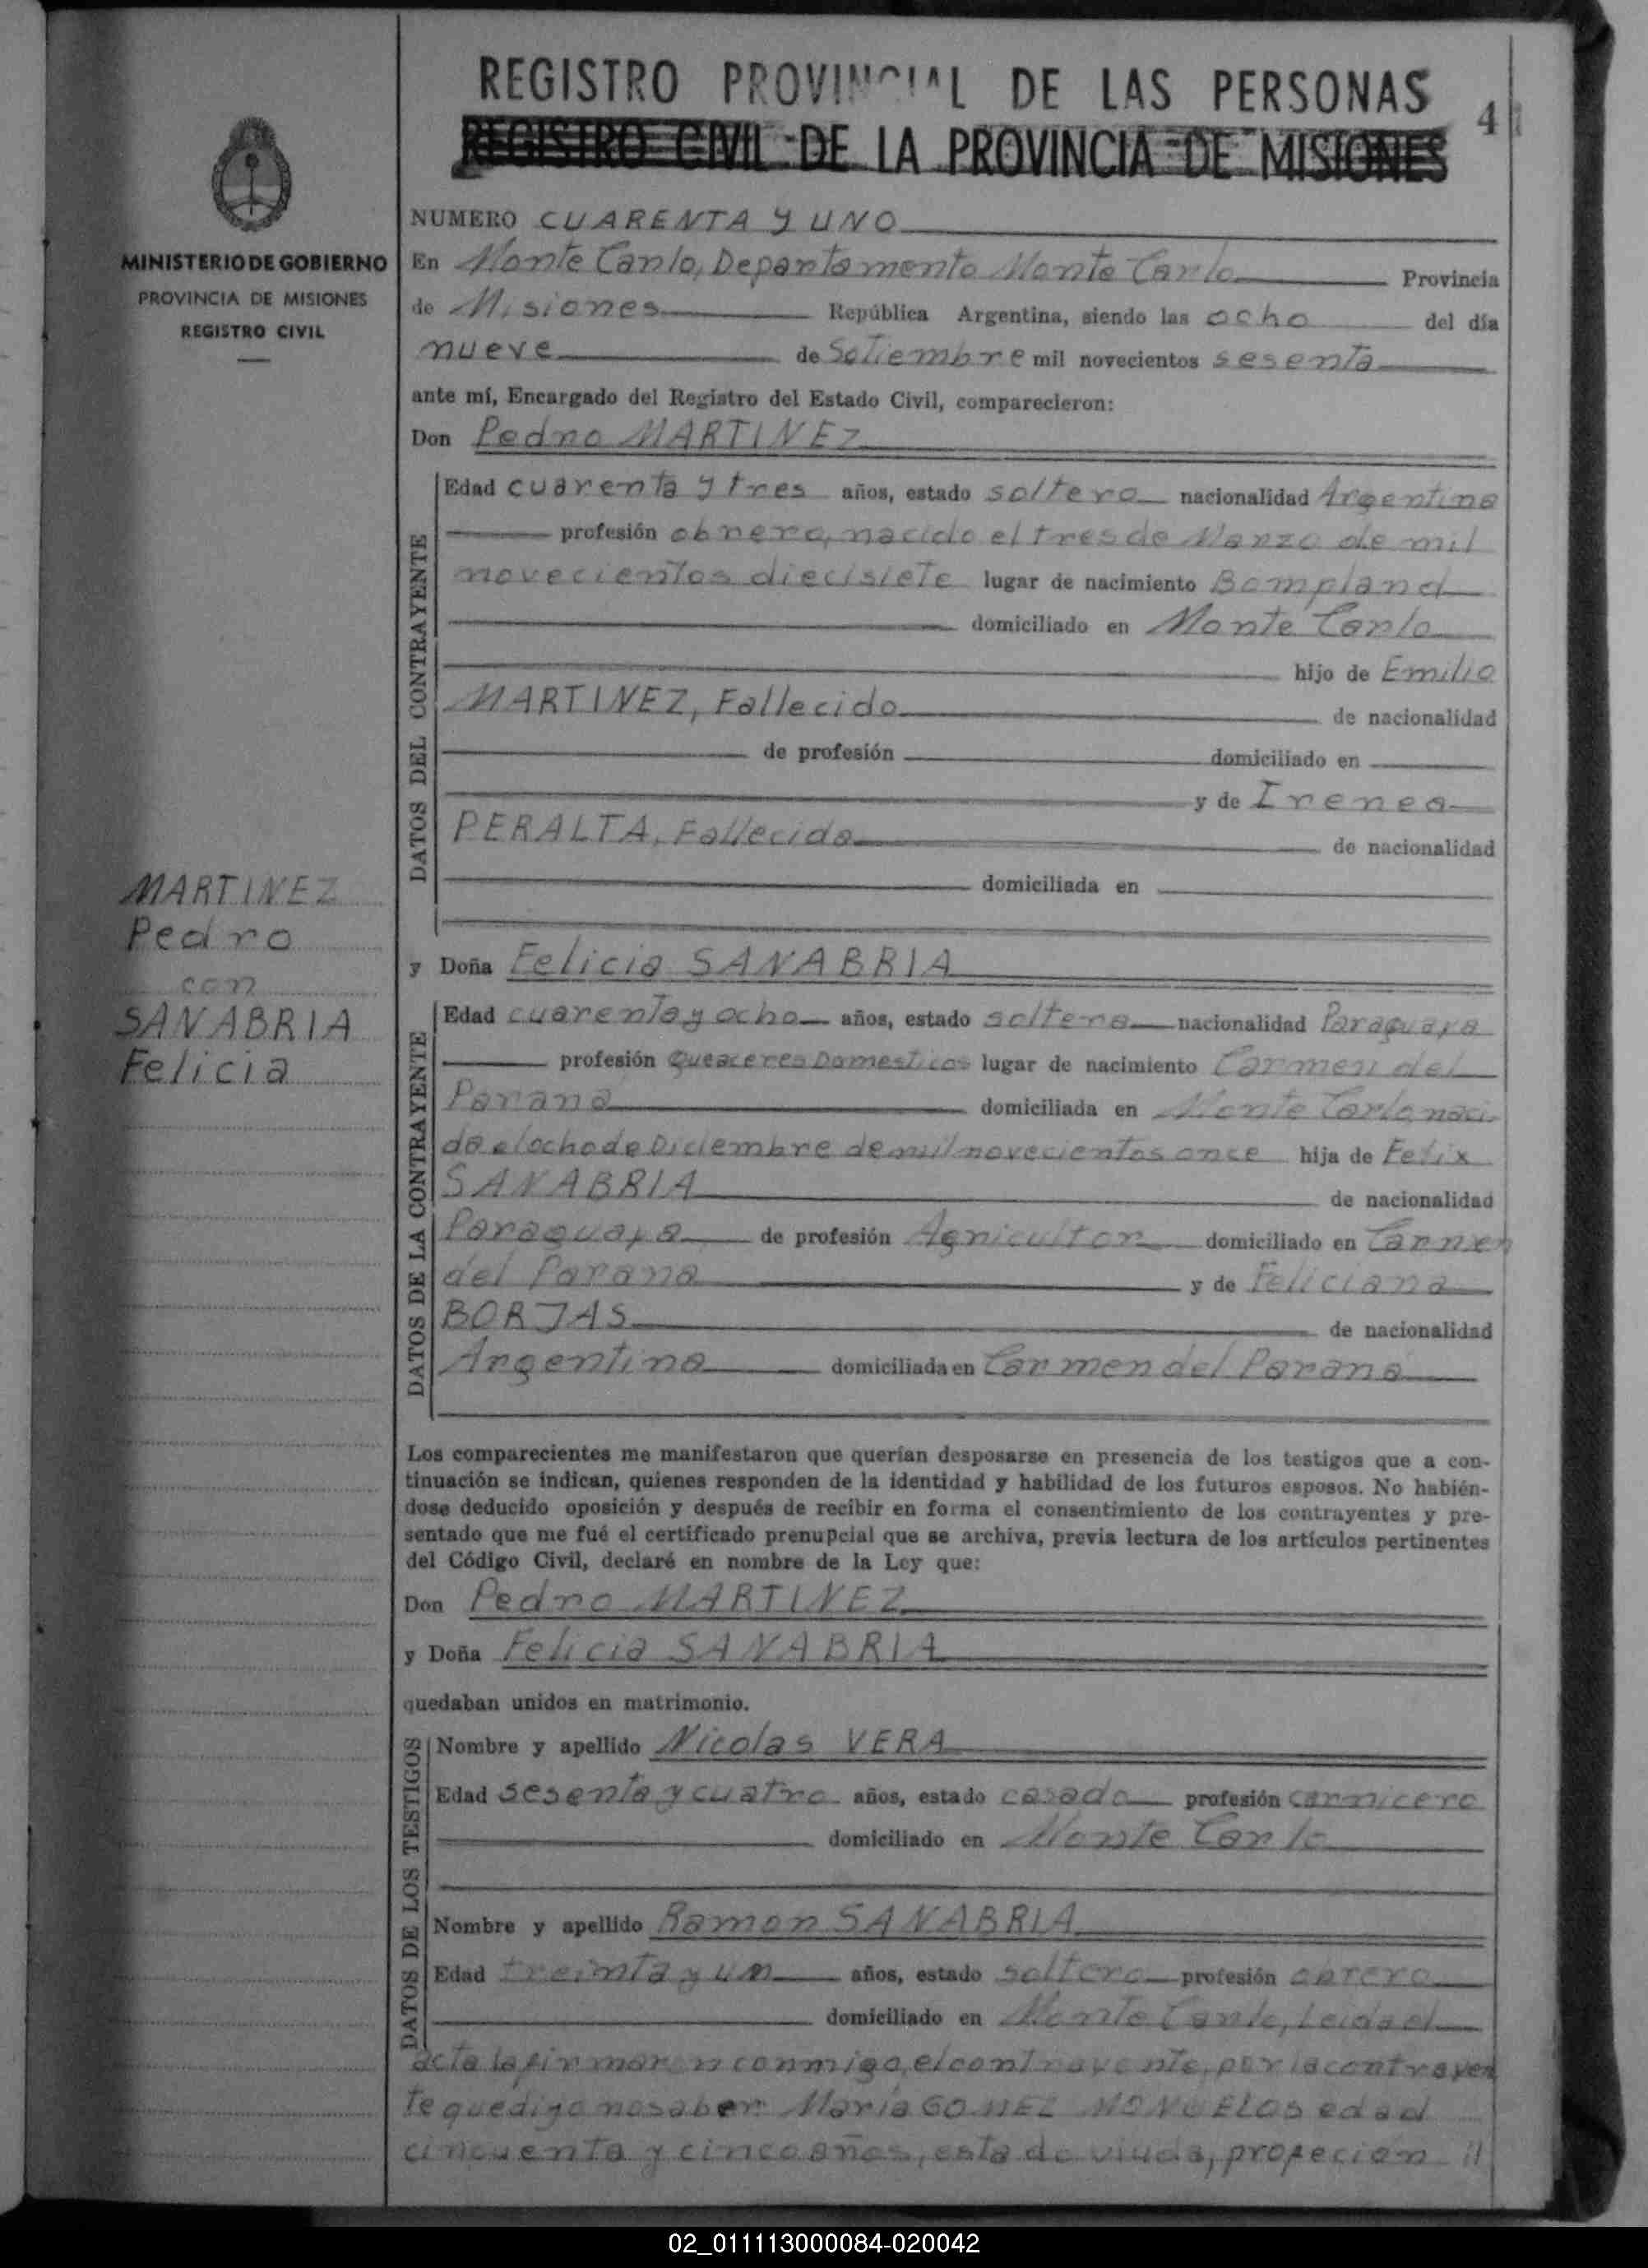 REGISTRO PROVINCIAL DE LAS PERSONAS
41
REGISTRO CIVIL DE LA PROVINCIA DE MISIONES
MINISTERIO DE GOBIERNO
PROVINCIA DE MISIONES
REGISTRO CIVIL
MARTINEZ
Pedro
con
SANABRIA
Felicia
NUMERO CUARENTA Y UNO
En Monte Carlo, Departamento Monte Carlo Provincia
de Misiones República Argentina, siendo las ocho del día
nueve de Setiembre mil novecientos sesenta
ante mí, Encargado del Registro del Estado Civil, comparecieron:
Don Pedro MARTINEZ
DATOS DEL CONTRAYENTE
Edad cuarenta y tres años, estado soltero nacionalidad Argentina
profesión obrero, nacido el tres de Marzo de mil
novecientos diecisiete lugar de nacimiento Bompland
domiciliado en Monte Carlo
hijo de Emilio
MARTINEZ, Fallecido de nacionalidad
de profesión domiciliado en
y de Irenea
PERALTA, Fallecida de nacionalidad
domiciliada en
y Doña Felicia SANABRIA
DATOS DE LA CONTRAYENTE
Edad cuarenta y ocho años, estado soltera nacionalidad Paraguaya
profesión Queaceres Domesticos lugar de nacimiento Carmen del
Parana domiciliada en Monte Carlo naci-
da el ocho de Diciembre de mil novecientos once hija de Felix
SANABRIA de nacionalidad
Paraguaya de profesión Agricultor domiciliado en Carmen
del Parana y de Feliciana
BORJAS de nacionalidad
Argentina domiciliada en Carmen del Parana
Los comparecientes me manifestaron que querían desposarse en presencia de los testigos que a con-
tinuación se indican, quienes responden de la identidad y habilidad de los futuros esposos. No habién-
dose deducido oposición y después de recibir en forma el consentimiento de los contrayentes y pre-
sentado que me fué el certificado prenupcial que se archiva, previa lectura de los artículos pertinentes
del Código Civil, declaré en nombre de la Ley que:
Don Pedro MARTINEZ
y Doña Felicia SANABRIA
quedaban unidos en matrimonio.
DATOS DE LOS TESTIGOS
Nombre y apellido Nicolas VERA
Edad sesenta y cuatro años, estado casado profesión carnicero
domiciliado en Monte Carlo
Nombre y apellido Ramon SANABRIA
Edad treinta y un años, estado soltero profesión obrero
domiciliado en Monte Carlo, Leida el
acta la firmaron conmigo, el contrayente, por la contrayen
te que dijo no saber Maria GOMEZ edad
cincuenta y cinco años, estado viuda, profecion //
02_011113000084-020042